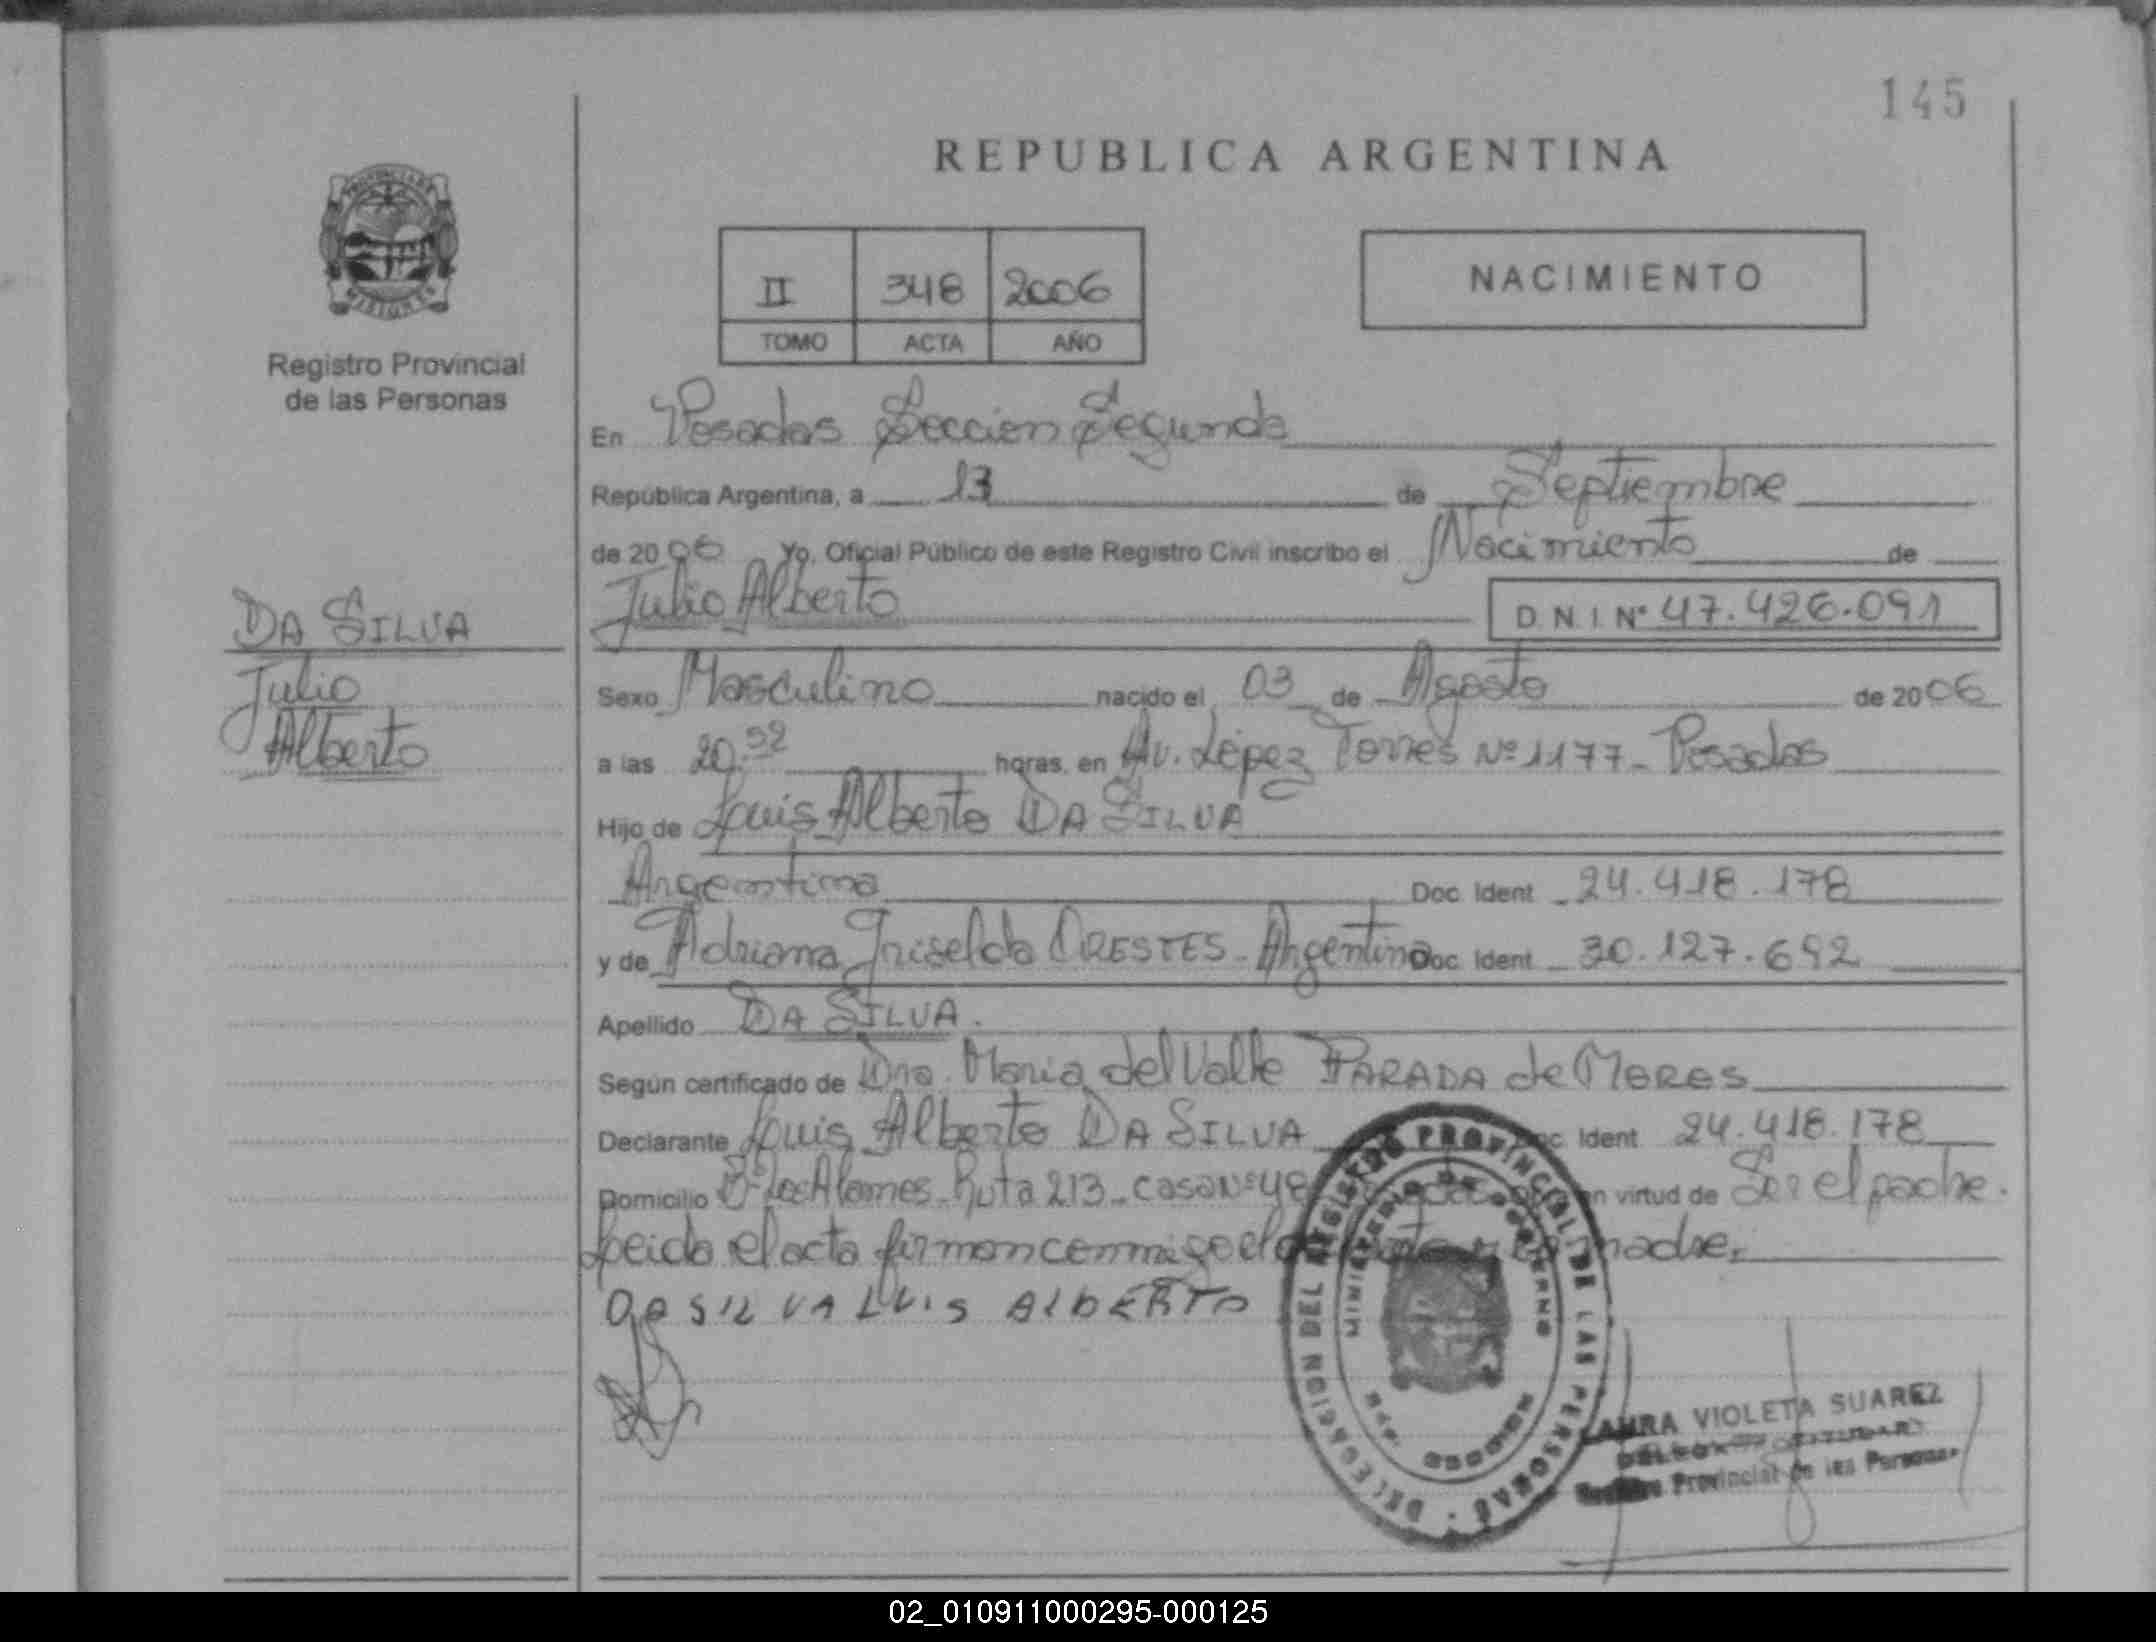 145
REPUBLICA ARGENTINA
PROVINCIA DE
MISIONES
Registro Provincial
de las Personas
II 348 2006
TOMO ACTA AÑO
NACIMIENTO
En Posadas Sección Segunda
República Argentina, a 13 de Septiembre
de 2006 Yo, Oficial Público de este Registro Civil inscribo el Nacimiento de
Julio Alberto
D.N.I. Nº 47.426.091
DA SILVA
Julio
Alberto
Sexo Masculino nacido el 03 de Agosto de 2006
a las horas, en Av. López Torres Nº 1177 - Posadas
Hijo de Luis Alberto DA SILVA
Argentina Doc. Ident 24.418.178
y de Adriana Griselda ORESTES - Argentina Doc. Ident 30.127.692
Apellido DA SILVA.
Según certificado de Dra. Maria del Valle PARADA de
Declarante Luis Alberto DA SILVA Doc. Ident 24.418.178
Domicilio Bº Los Alamos - Ruta 213 - casa Nº en virtud de Ser el padre.
Leida el acta firman conmigo el y la madre.
DA SILVA LUIS ALBERTO
DELEGACION DEL REGISTRO PROVINCIAL DE LAS PERSONAS
MINISTERIO DE GOBIERNO
LAURA VIOLETA SUAREZ
Provincial de las Personas
02_010911000295-000125